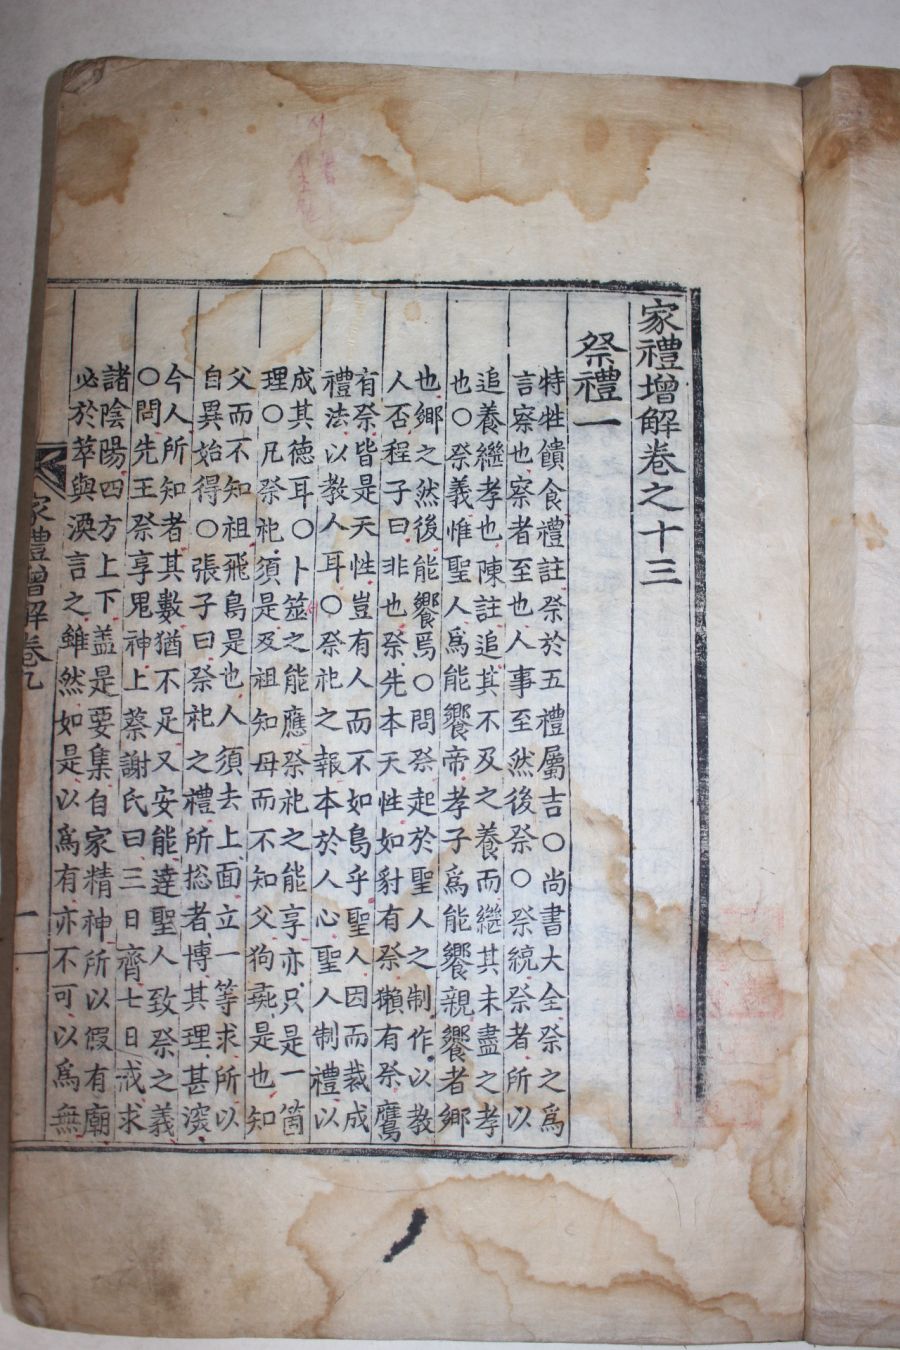 家禮增解卷之十三
祭禮一
特牲饋食禮註祭於五禮屬吉○尚書大全祭之爲
言察也察者至也人事至然後祭○祭統祭者所以
追養繼孝也陳註追其不及之養而繼其未盡之孝
也○祭義惟聖人爲能饗帝孝子爲能饗親饗者鄉
也鄉之然後能饗焉○問祭起於聖人之制作以教
人否程子曰非也祭先本天性如豺有祭獺有祭鷹
有祭皆是天性豈有人而不如鳥乎聖人因而裁成
禮法以教人耳○祭祀之報本於人心聖人制禮以
成其德耳○卜筮之能應祭祀之能享亦只是一箇
理○凡祭祀須是及祖知母而不知父狗彘是也知
父而不知祖飛鳥是也人須去上面立一等求所以
自異始得○張子曰祭祀之禮所捴者博其理甚深
今人所知者其數猶不足又安能達聖人致祭之義
○問先王祭享鬼神上蔡謝氏曰三日齊七日戒求
諸陰陽四方上下盖是要集自家精神所以假有廟
必於萃與渙言之雖然如是以爲有亦不可以爲無
家禮增解卷九
一